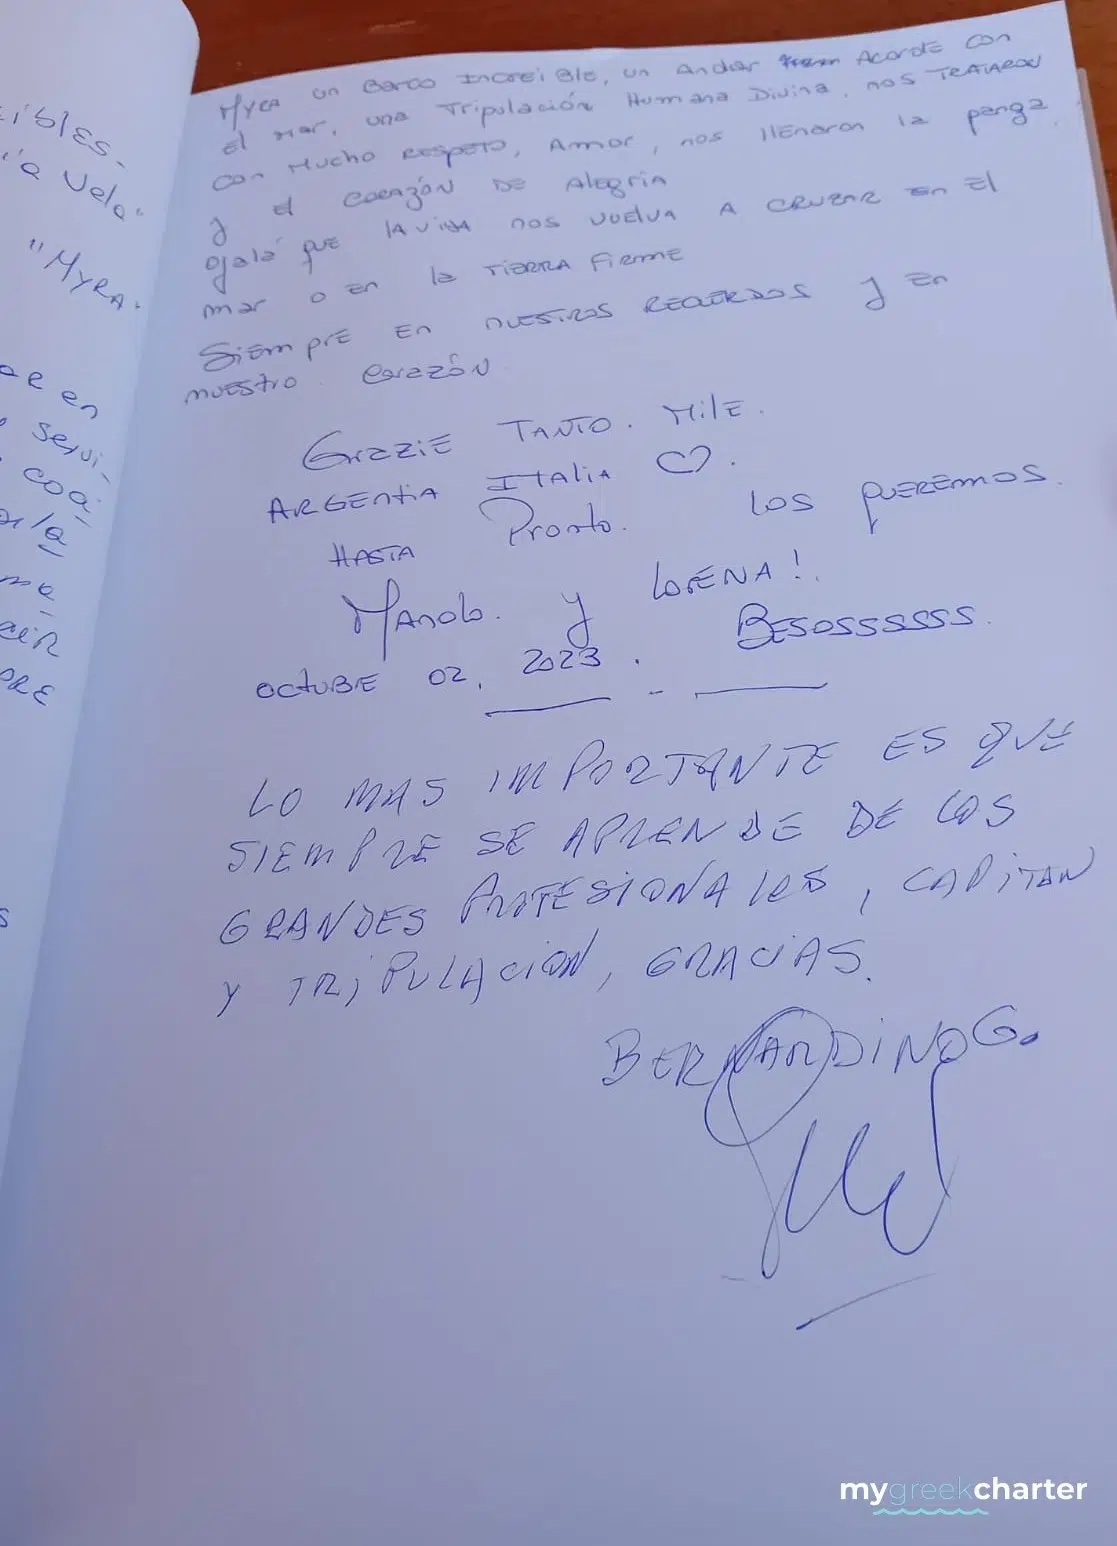 ibles.
a Vela"
"MYRA.
en
servi-
coa-
PRE
MYRA un Barco Increible, un Andar Acorde con
el mar, una Tripulación Humana Divina, nos TRATARON
con Mucho RESPETO, Amor, nos llenaron la panza
y el corazón DE Alegría
Ojalá que LA VIDA nos VUELVA A CRUZAR en El
mar o en la TIERRA Firme
Siempre En nuestros RECUERDOS y En
nuestro corazón
Grazzie TANTO. Mile.
ARGENtiA ITAliA ♡.
HASTA Pronto. los queremos.
Manolo. y LORENA!.
octuBE 02, 2023. BESOSSSSSS.
LO MAS IMPORTANTE ES QUE
SIEMPRE SE APRENDE DE LOS
GRANDES PROFESIONALES, CAPITAN
Y TRIPULACION, GRACIAS.
BERNARDINO G.
mygreekcharter